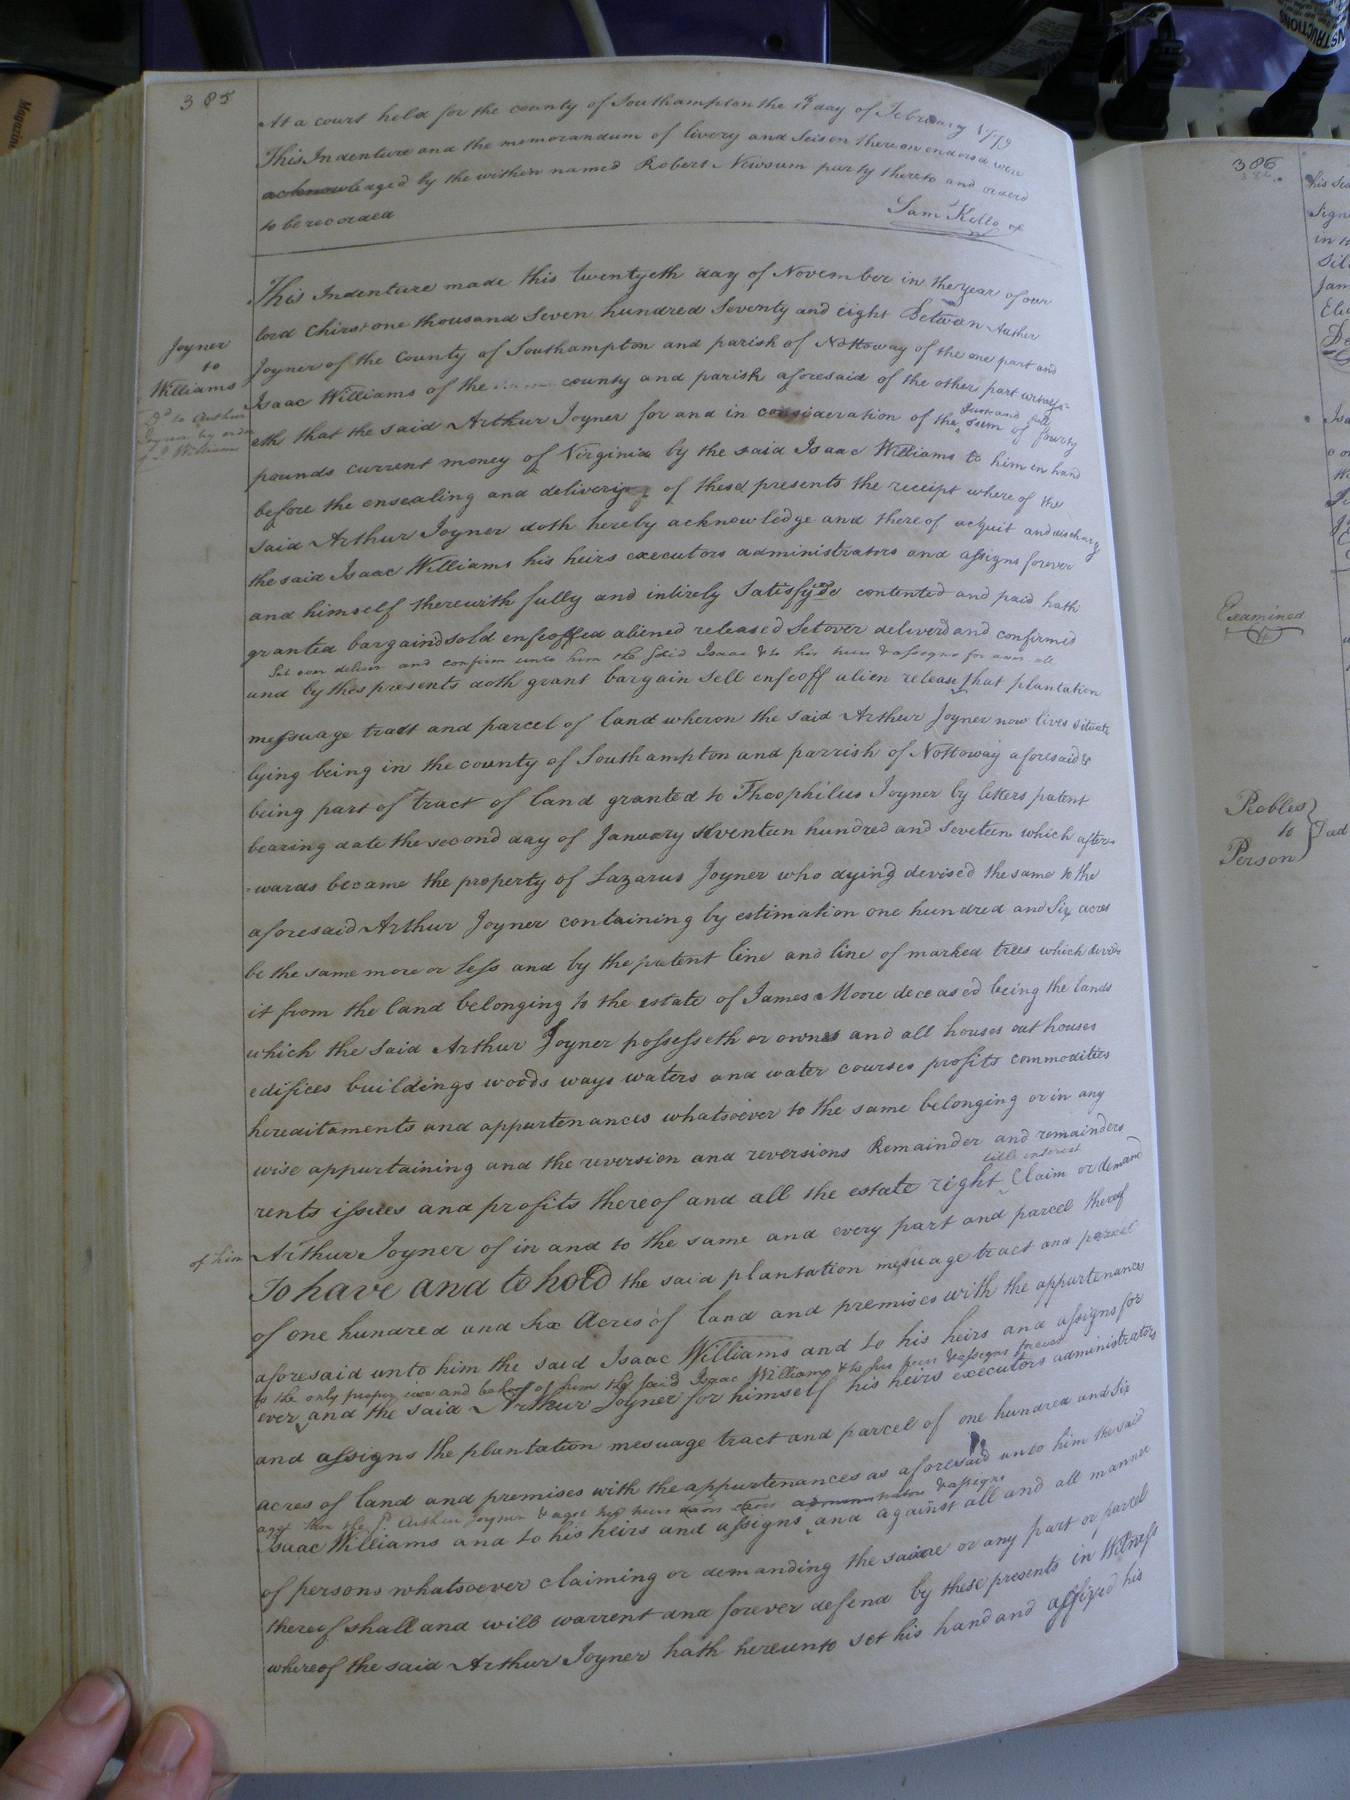 385
At a court held for the county of Southampton the 11th day of February 1779
This Indenture and the memorandum of livery and Seisen thereon endorsd were
acknowledged by the within named Robert Newsum party thereto and orderd
to be recorded
Sam Kello
This Indenture made this twentyeth day of November in the year of our
lord Chirst one thousand Seven hundred Seventy and eight Between Author
Joyner of the County of Southampton and parish of Nottoway of the one part and
Joyner
to
Williams
Dd to Arthur
Joyner by order
of Williams
Isaac Williams of the county and parish aforesaid of the other part witness-
Just and full
eth that the said Arthur Joyner for and in consideration of the sum of fourty
pounds current money of Virginia by the said Isaac Williams to him in hand
before the ensealing and delivery of these presents the receipt where of the
said Arthur Joyner doth hereby acknowledge and thereof acquit and discharg
the said Isaac Williams his heirs executors administrators and assigns forever
and himself therewith fully and intirely Satisfyde contented and paid hath
granted bargaind sold enfeoffed aliened released Setover deliverd and confirmed
Set over deliver and confirm unto him the said Isaac & to his heirs & assigns for ever all
and by thes presents doth grant bargain Sell enfeoff alien release that plantation
messuage tract and parcel of land wheron the said Arthur Joyner now lives situate
lying being in the county of Southampton and parrish of Nottoway aforesaid &
being part of tract of land granted to Theophilus Joyner by letters patent
bearing date the second day of January seventeen hundred and Seveteen which after-
-wards became the property of Lazarus Joyner who dying devised the same to the
aforesaid Arthur Joyner containing by estimation one hundred and Six acres
be the same more or Less and by the patent line and line of marked trees which divids
it from the land belonging to the estate of James Moore deceased being the lands
which the said Arthur Joyner possesseth or ownes and all houses out houses
edifices buildings woods ways waters and water courses profits commodities
hereditaments and appurtenances whatsoever to the same belonging or in any
wise appurtaining and the reversion and reversions Remainder and remainders
title interest
rents issues and profits thereof and all the estate right Claim or demand
of him
Arthur Joyner of in and to the same and every part and parcel thereof
To have and to hold the said plantation mesuage tract and parcel
of one hundred and Six Acres of land and premises with the appurtenances
aforesaid unto him the said Isaac Williams and to his heirs and assigns for
to the only proper use and behoof of him the said Isaac Williams & to his heirs & assigns forever
ever and the said Arthur Joyner for himself his heirs executors administrators
and assigns the plantation mesuage tract and parcel of one hundred and Six
acres of land and premises with the appurtenances as aforesaid unto him the said
agst him the sd Arthur Joyner & agst his heirs & assigns
Isaac Williams and to his heirs and assigns and against all and all manner
of persons whatsoever claiming or demanding the same or any part or parcel
thereof shall and will warrent and forever defend by these presents in Witness
whereof the said Arthur Joyner hath hereunto set his hand and affixed his
386
his Sea
Sign
in
Sil
Jam
Examined
Robles
to
Person